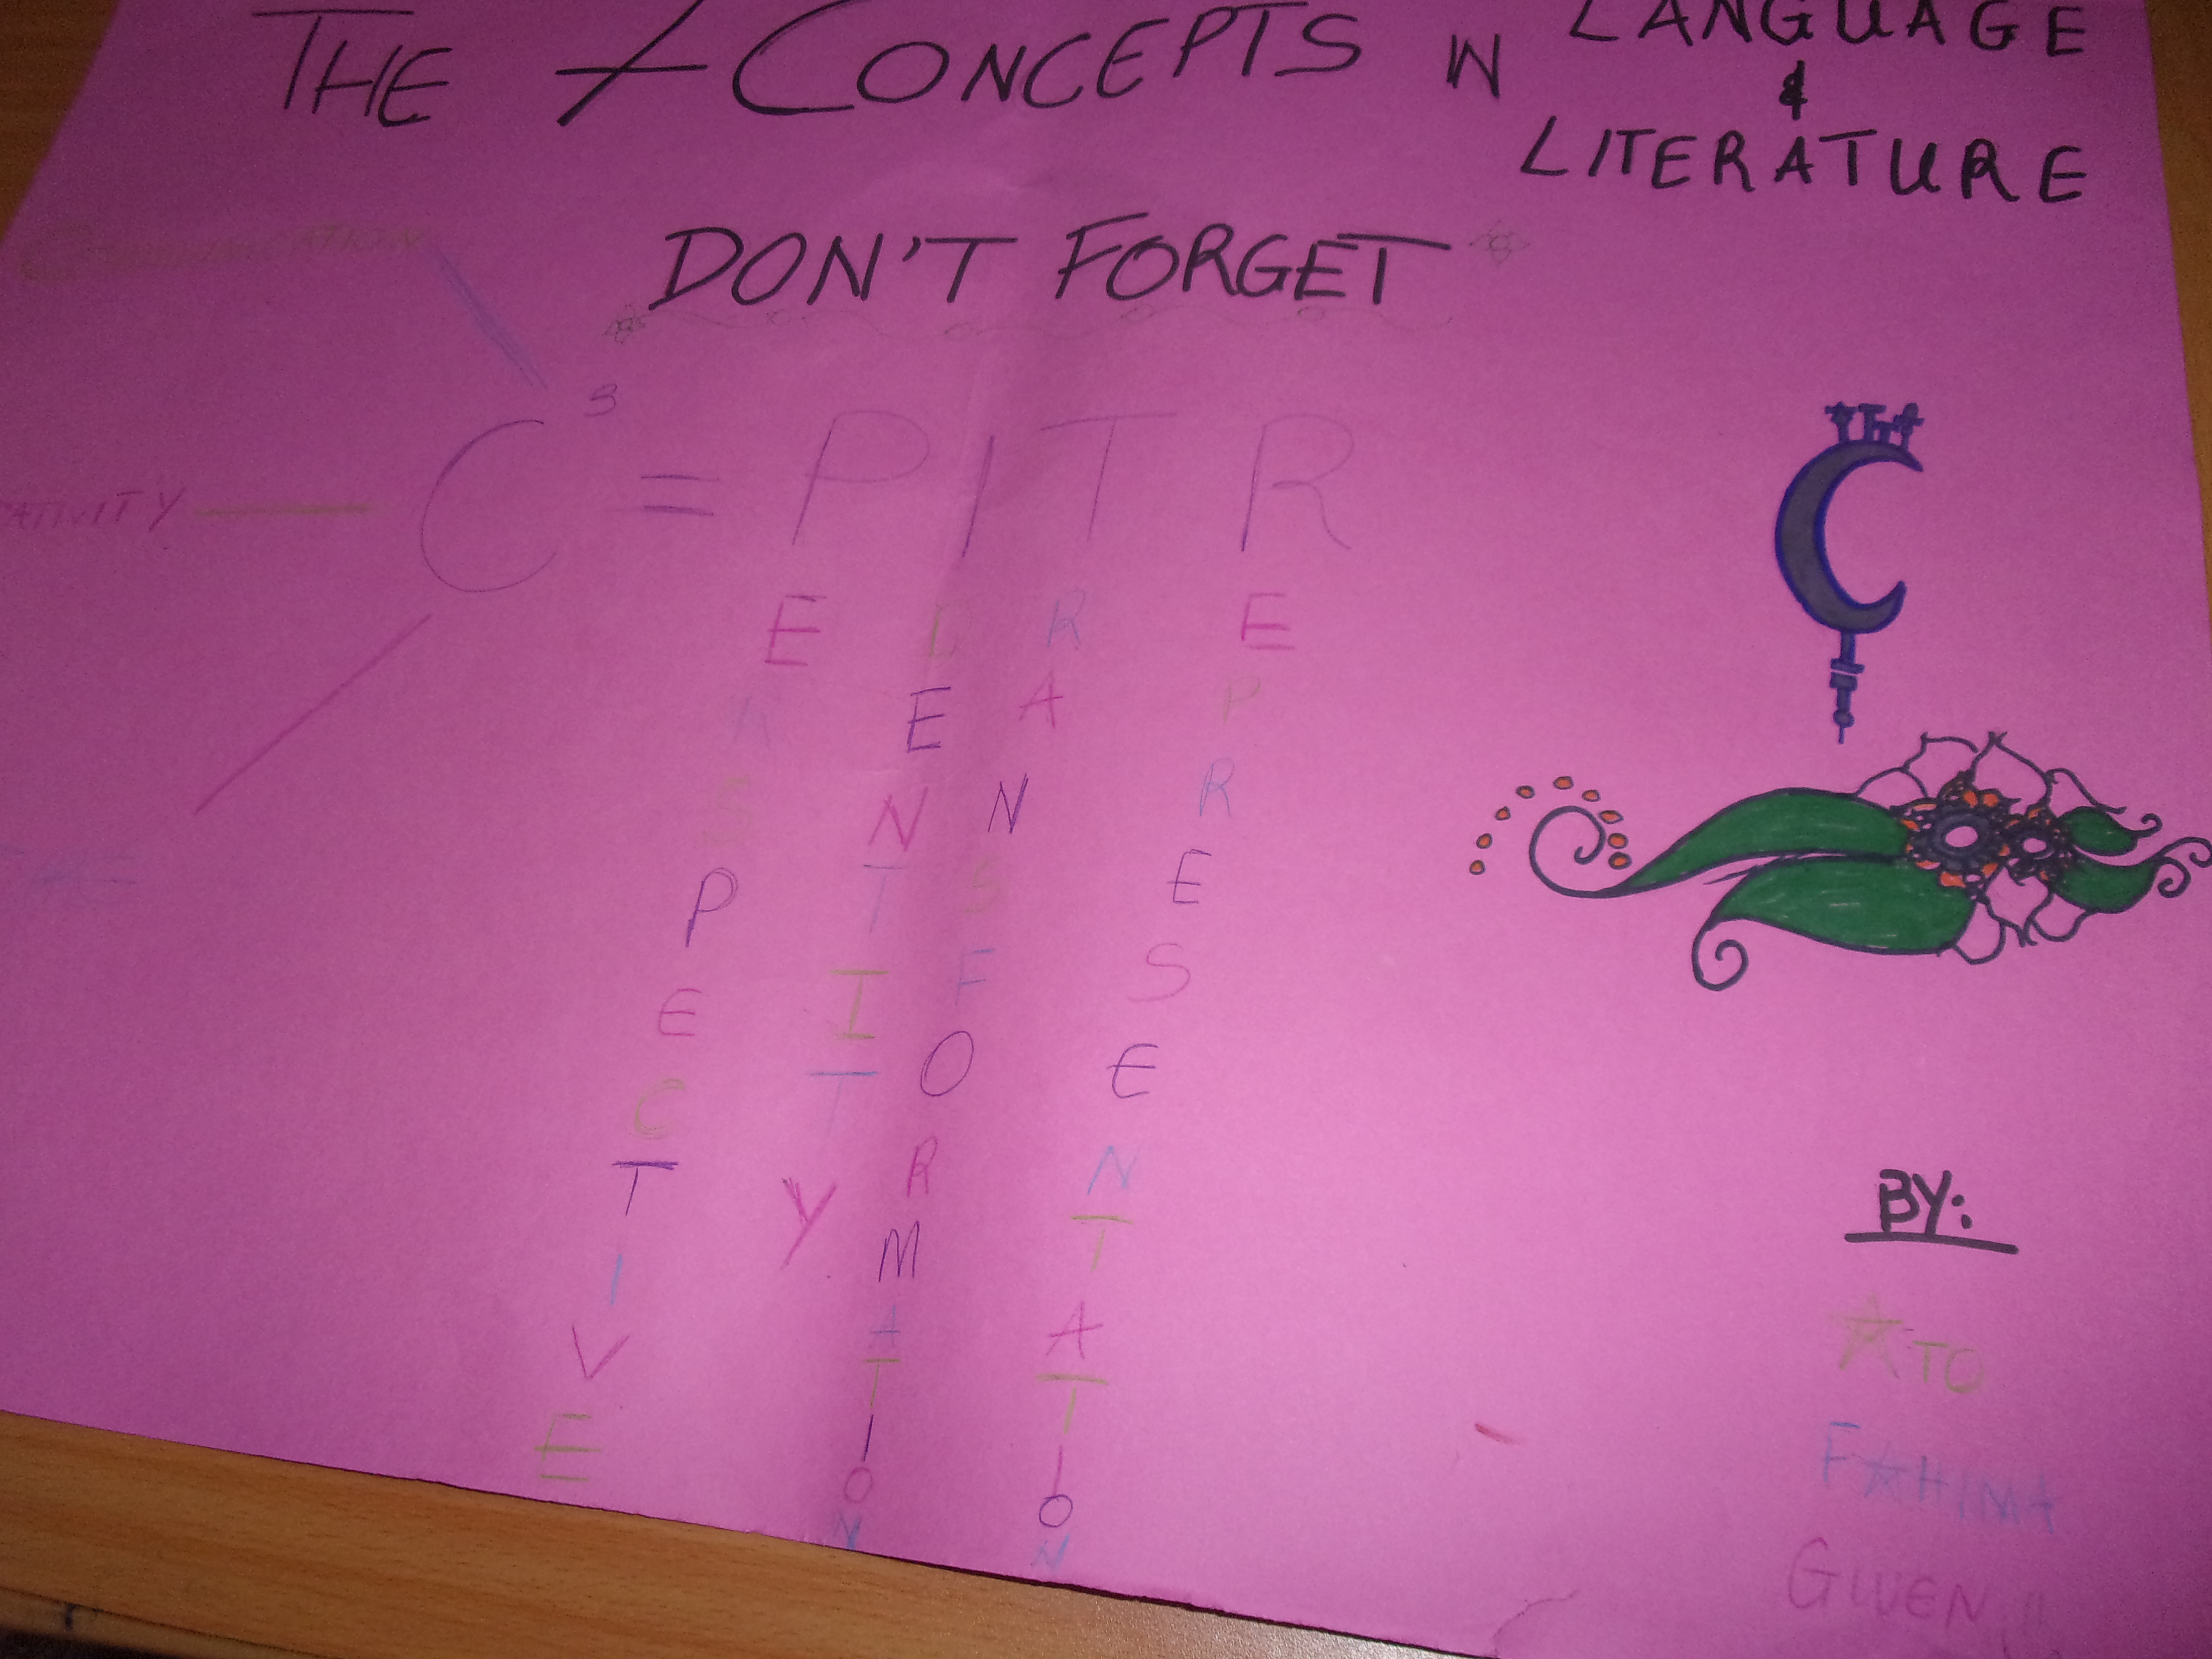 THE 7 CONCEPTS IN LANGUAGE
&
LITERATURE
DON'T FORGET
COMMUNICATION
C³ = PITR
ATIVITY
PERSPECTIVE
IDENTITY
TRANSFORMATION
REPRESENTATION
BY:
ATO
FAHIMA
GWEN